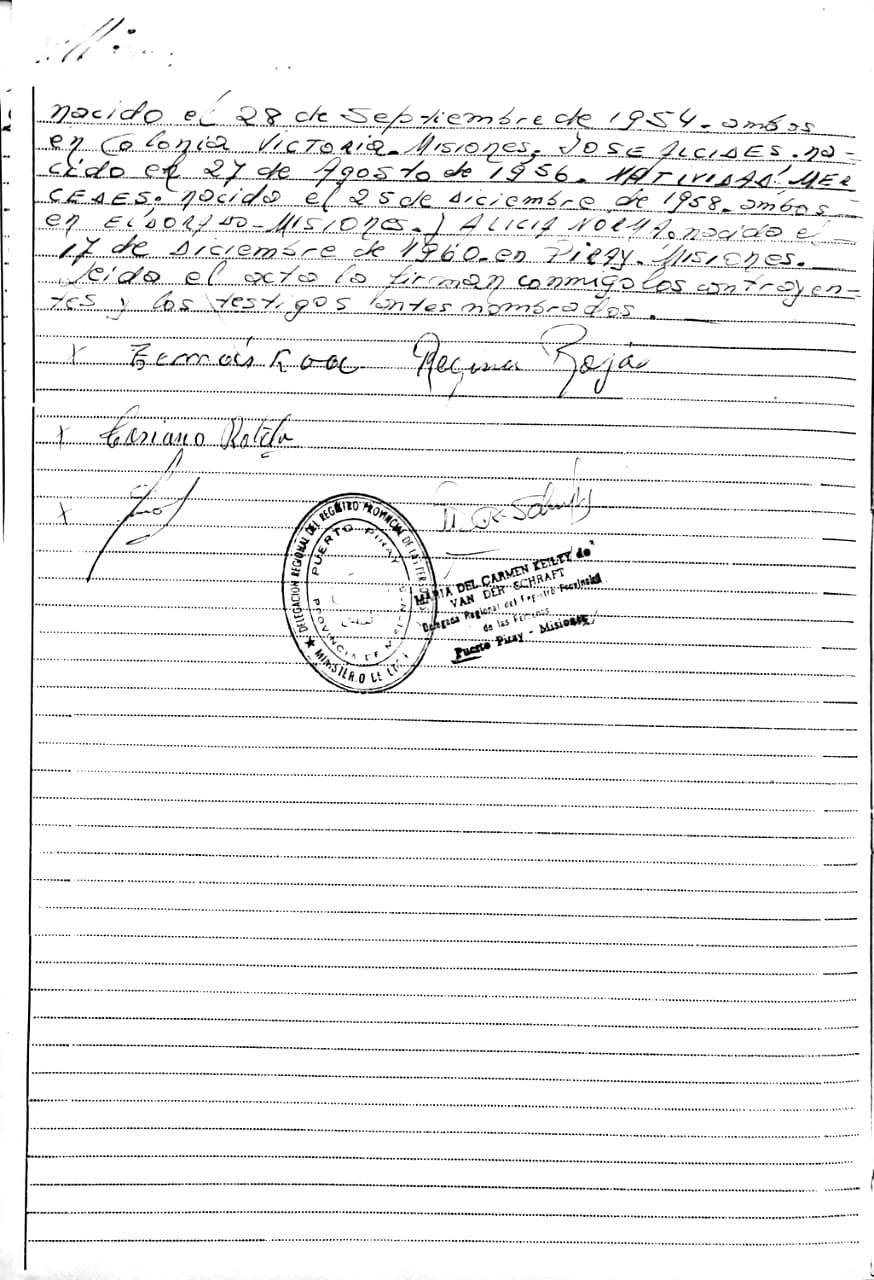 nacido el 28 de Septiembre de 1954. ambos
en Colonia VICTORIA. MISIONES. JOSE ALCIDES. na-
cido el 27 de Agosto de 1956. NATIVIDAD MER
CEDES. nacido el 25 de Diciembre de 1958. ambos
en ELDORADO - MISIONES. y ALICIA NORMA. nacido el
17 de Diciembre de 1960. en PIRAY. MISIONES.
Leido el acta la firman conmigo los contrayen-
tes y los testigos antes nombrados.
X Roa Regina Rojas
X Ciriano Rotela
X
DELEGACION REGIONAL DEL REGISTRO PROVINCIAL DE LAS PERSONAS
PUERTO PIRAY
PROVINCIA DE MISIONES
★ MINISTERIO DE
MARIA DEL CARMEN KEILTY de
VAN DER SCHRAFT
Delegada Regional del Registro Provincial
de las Personas
Puerto Piray - Misiones